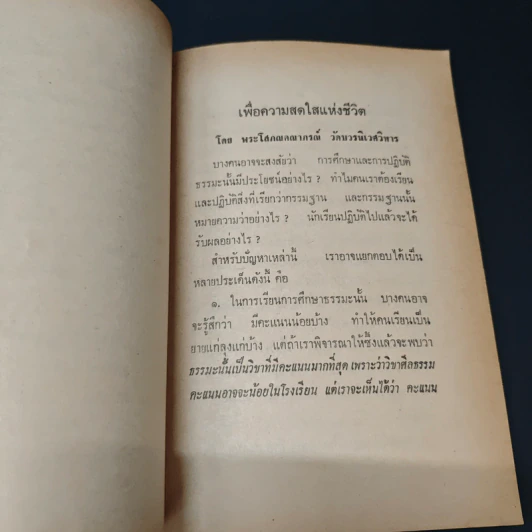 เพื่อความสดใสแห่งชีวิต
โดย พระโสภณคณาภรณ์ วัดบวรนิเวศวิหาร
บางคนอาจจะสงสัยว่า การศึกษาและการปฏิบัติ
ธรรมะนั้นมีประโยชน์อย่างไร ? ทำไมคนเราต้องเรียน
และปฏิบัติสิ่งที่เรียกว่ากรรมฐาน และกรรมฐานนั้น
หมายความว่าอย่างไร ? นักเรียนปฏิบัติไปแล้วจะได้
รับผลอย่างไร ?
สำหรับปัญหาเหล่านี้ เราอาจแยกตอบได้เป็น
หลายประเด็นดังนี้ คือ
๑. ในการเรียนการศึกษาธรรมะนั้น บางคนอาจ
จะรู้สึกว่า มีคะแนนน้อยบ้าง ทำให้คนเรียนเป็น
ยายแก่ลุงแก่บ้าง แต่ถ้าเราพิจารณาให้ซึ้งแล้วจะพบว่า
ธรรมะนั้นเป็นวิชาที่มีคะแนนมากที่สุด เพราะว่าวิชาศีลธรรม
คะแนนอาจจะน้อยในโรงเรียน แต่เราจะเห็นได้ว่า คะแนน